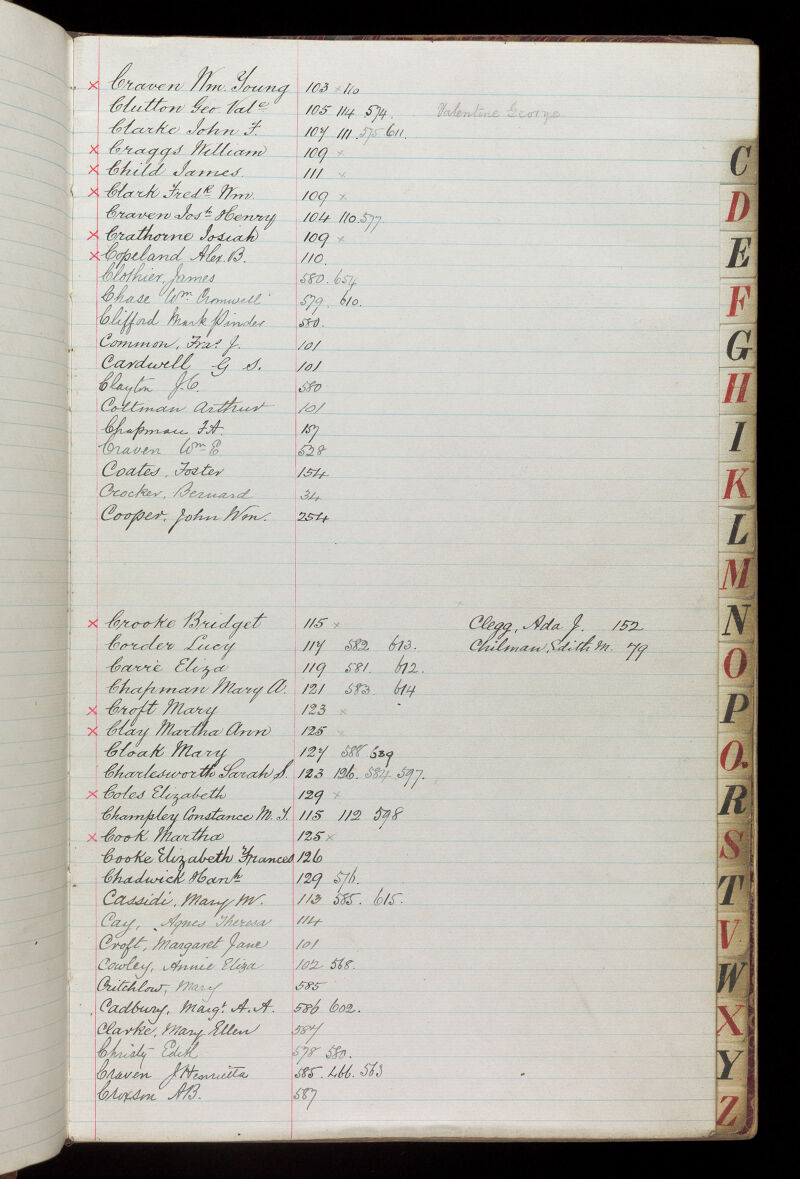 × Craven Wm. Young 103 × 110
Clutton Geo. Valⁿᵉ 105 114 574. Valentine George
Clarke John F. 107 111. 575 611.
× Craggs William 109 ×
× Child James. 111 ×
× Clark Fredᵏ Wm. 109 ×
Craven Josʰ Henry 104 110. 577.
× Crathorne Josiah 109 ×
× Copeland Alex. B. 110.
Clothier, James 580. 654
Chase Wᵐ Cromwell 579. 610.
Clifford Mark Pinder 580.
Common, Fraˢ J. 101
Cardwell G S. 101
Clayton J.C. 580
Coltman Arthur 101
Chapman F.A. 157
Craven Wᵐ E. 528
Coates, Foster 154
Crocker, Bernard 34
Cooper, John Wm. 254
× Crooke Bridget 115 × Clegg, Ada J. 152
Corder Lucy 117 582 613. Chilman, Edith M. 79
Carrè Eliza 119 581. 612.
Chapman Mary A. 121 583. 614
× Croft Mary 123 ×
× Clay Martha Ann 125 ×
Cloak Mary 127 588 589
Charlesworth Sarah S. 123 126. 584 597.
× Coles Elizabeth 129 ×
Champley Constance M. Y. 115 112 598
× Cook Martha 125 ×
Cooke Elizabeth Frances 126
Chadwick Hanʰ 129 576.
Cassidi, Mary M. 113 585. 615.
Cay, Agnes Theresa 114
Croft, Margaret Jane 101
Cowley, Annie Eliza 102 568.
Critchlow, Mary 585
Cadbury, Margᵗ A. A. 586 602.
Clarke, Mary Ellen 587
Christy Edith 578 580.
Craven J Henrietta 585. 466. 563
Croxson AB. 587
C
D
E
F
G
H
I
K
L
M
N
O
P
Q.
R
S
T
V
W
X
Y
Z